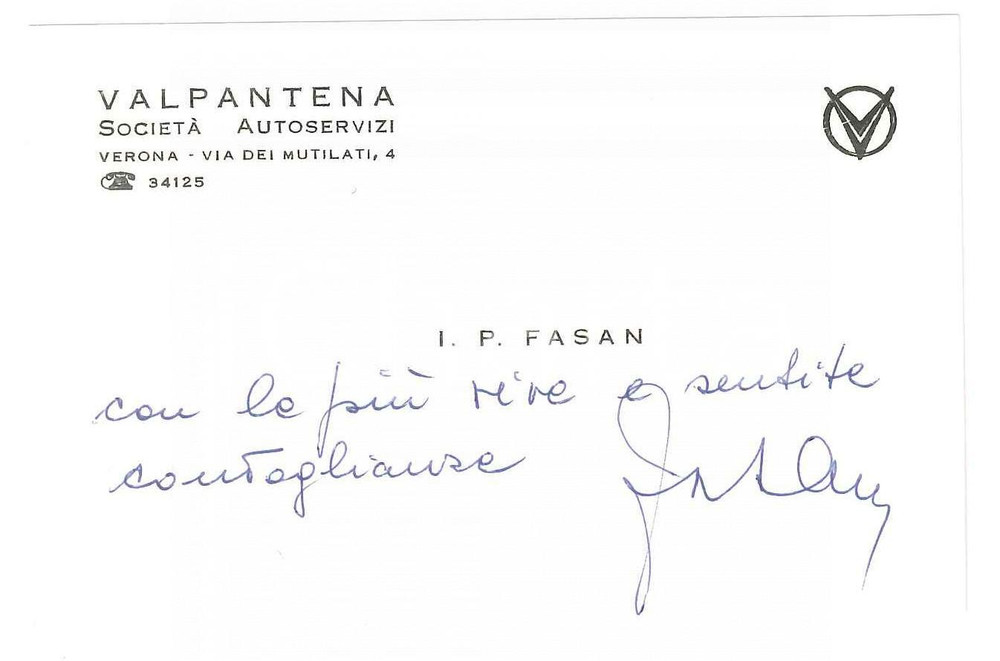 VALPANTENA
SOCIETÀ AUTOSERVIZI
VERONA - VIA DEI MUTILATI, 4
34125
I. P. FASAN
con le più vive e sentite
condoglianze